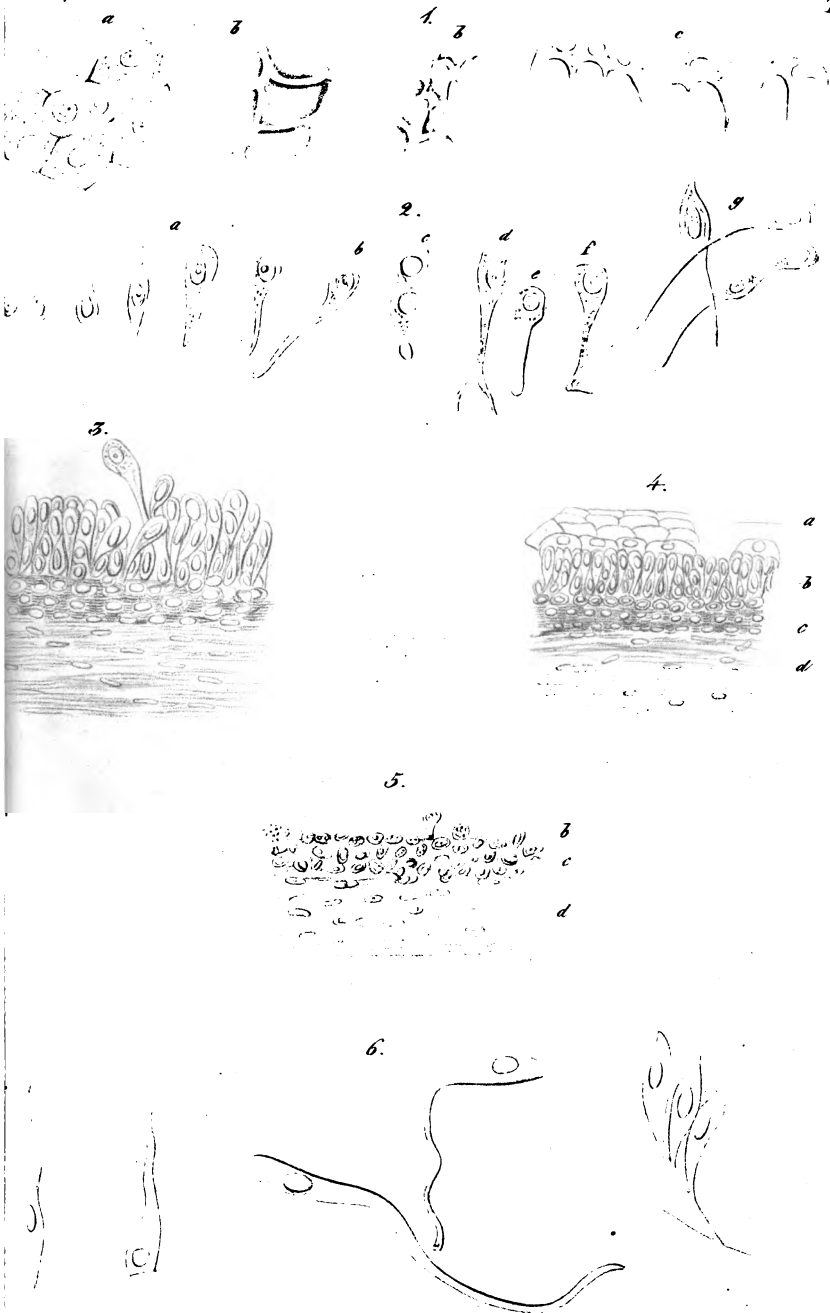 a b 1. b c
2.
a b c d e f g
3.
4.
a
b
c
d
5.
b
c
d
6.